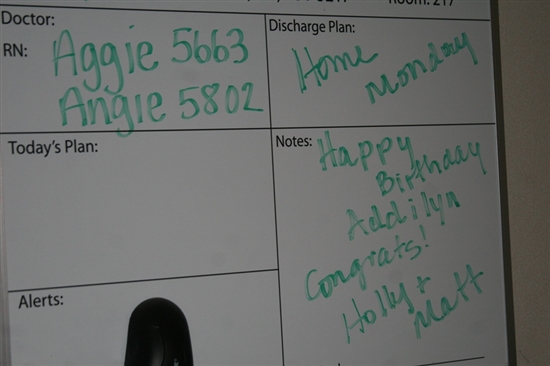 Room: 217
Doctor:
RN:
Aggie 5663
Angie 5802
Discharge Plan:
Home
Monday
Today's Plan:
Notes:
Happy
Birthday
Addilyn
Congrats!
Holly +
Matt
Alerts: